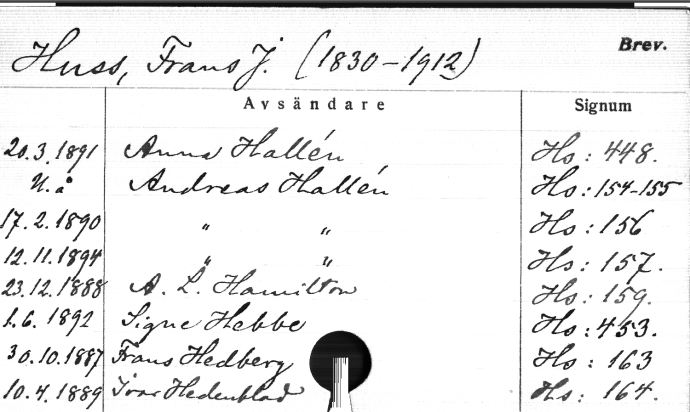 Huss, Frans J. (1830-1912) Brev.
Avsändare Signum
20.3.1891 Anna Hallén Hs: 448.
U.å Andreas Hallén Hs: 154-155
17.2.1890 " " Hs: 156
12.11.1894 " " Hs: 157.
23.12.1888 A. L. Hamilton Hs: 159.
1.6.1892 Signe Hebbe Hs: 453.
30.10.1887 Frans Hedberg Hs: 163
10.4.1889 Ivar Hedenblad Hs: 164.